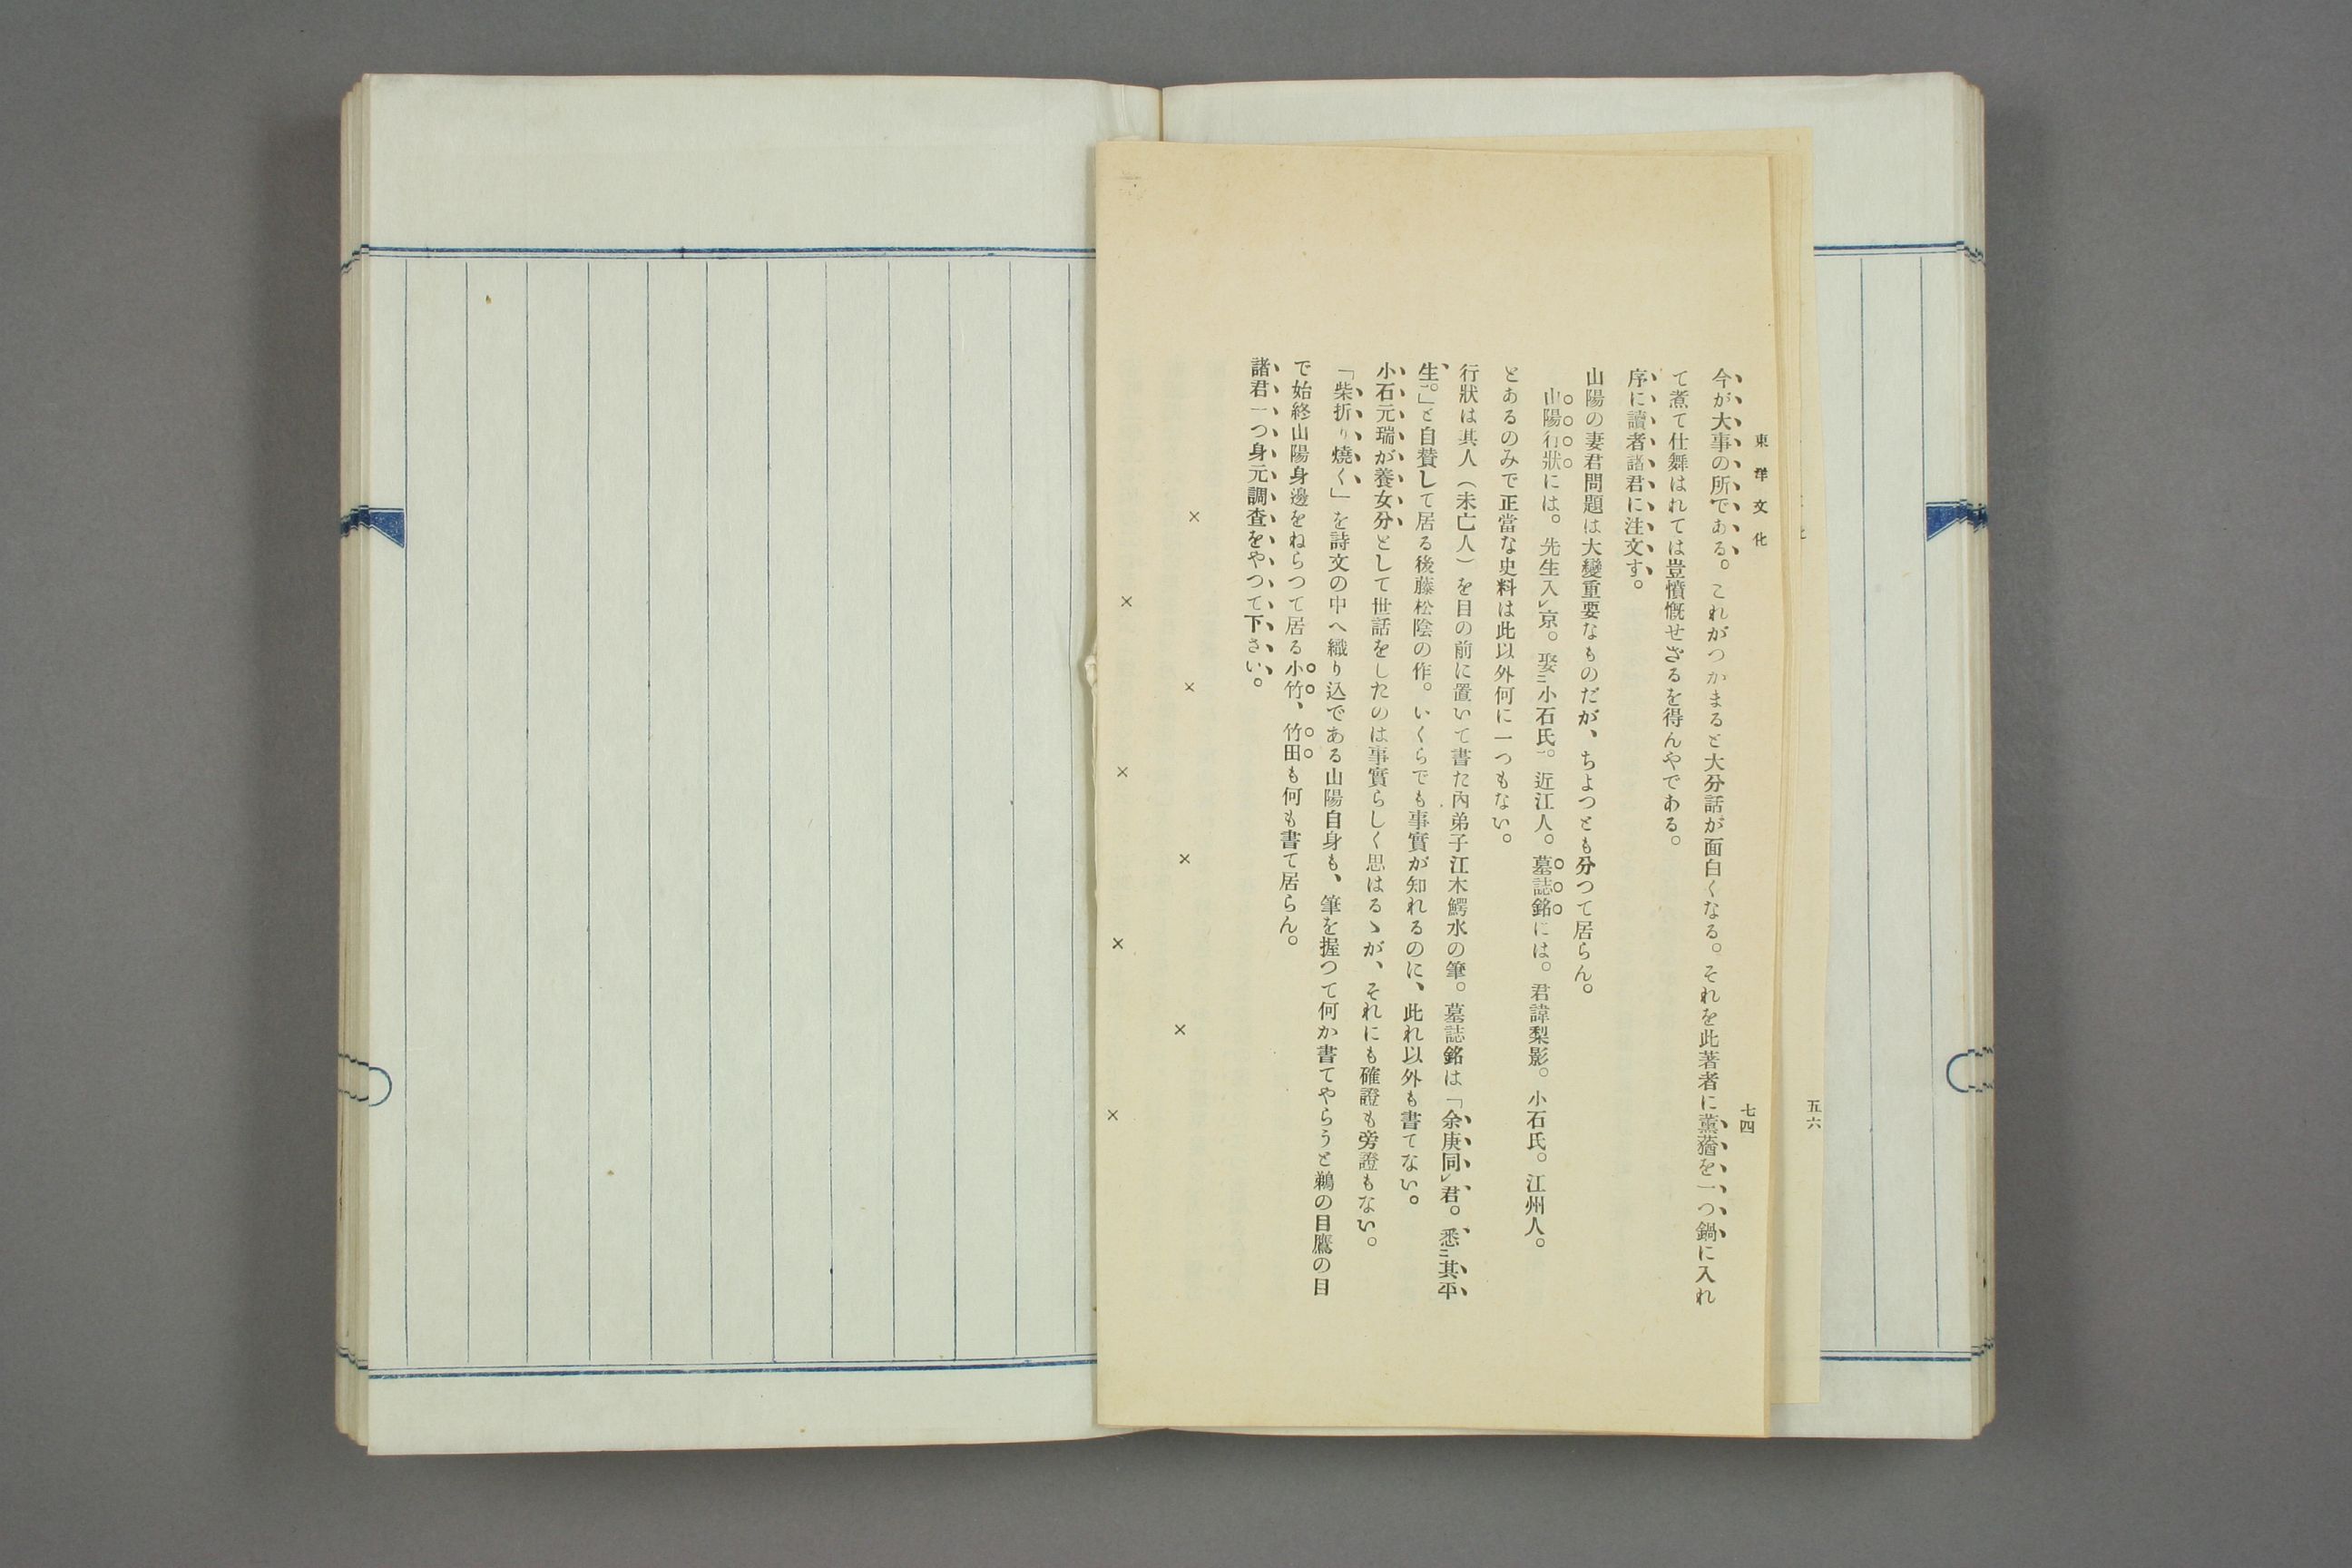 東洋文化
七四
今が大事の所である。これがつかまると大分話が面白くなる。それを此著者に薫蕕を一つ鍋に入れ
て煮て仕舞はれては豈憤慨せざるを得んやである。
序に讀者諸君に注文す。
山陽の妻君問題は大變重要なものだが、ちよつとも分つて居らん。
山陽行狀には。先生入㆑京。娶㆓小石氏㆒。近江人。墓誌銘には。君諱梨影。小石氏。江州人。
とあるのみで正當な史料は此以外何に一つもない。
行狀は其人（未亡人）を目の前に置いて書た內弟子江木鰐水の筆。墓誌銘は「余庚同㆑君。悉㆓其平
生㆒。」と自賛して居る後藤松陰の作。いくらでも事實が知れるのに、此れ以外も書てない。
小石元瑞が養女分として世話をしたのは事實らしく思はるゝが、それにも確證も旁證もない。
「柴折り燒く」を詩文の中へ織り込である山陽自身も、筆を握つて何か書てやらうと鵜の目鷹の目
で始終山陽身邊をねらつて居る小竹、竹田も何も書て居らん。
諸君一つ身元調査をやつて下さい。
× × × ×
× × × ×
五六